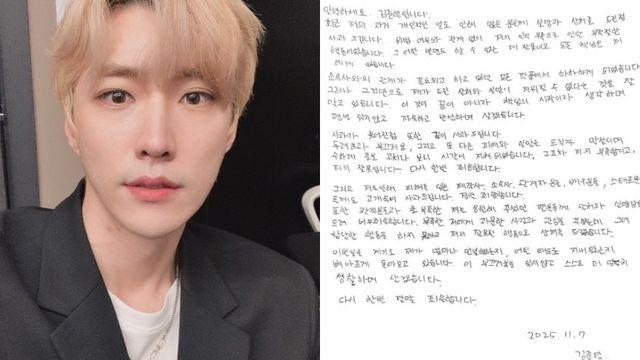 안녕하세요. 김준영입니다.
최근 저의 과거 개인적인 일로 인해 많은 분들께 실망과 상처를 드린점
사과드립니다. 위법 여부와 관계 없이 저의
행동이었습니다. 그 어떤 변명도 할 수 없는 제 잘못이고 모든 책임은 저
에게 있습니다.
소속사와의 관계가 종료되고 하고 있던 모든 작품에서 하차하게 되었습니다
그러나 그것만으로 제가 드린 상처와 실망이 지워질 수 없다는 것을 잘
알고 있습니다. 이 것이 끝이 아니라 책임의 시작이라 생각하며
평생 잊지않고 자숙하고 반성하며 살겠습니다.
사과가 늦어진점 또한 깊이 사과드립니다.
두려움과 부끄러움, 그리고 또 다른 피해와 실망을 드릴까 망설이며
시간이 지체 되었습니다. 그조차 저의 부족함이고,
저의 잘못입니다. 다시 한번 죄송합니다.
그리고 저로인해 피해를 입은 제작사, 소속사, 관계자분들, 배우분들, 스태프분
들께도 고개숙여 사과드립니다. 정말 죄송합니다.
또한 관객분들과 부족한 저를 응원해 주셨던 팬분들께 상처와 실망감을
드려 너무 죄송합니다. 부족한 저에게 과분한 사랑과 관심을 주셨는데, 그에
합당한 행동을 하지 못하고 저의 잘못된 행동으로 상처를 드렸습니다.
이번일을 계기로 제가 얼마나 안일했는지, 어떤 태도로 지내왔는지
뼈아프게 돌아보고 있습니다. 이 부끄러움을 잊지않고 스스로 더
성찰하며 살겠습니다.
다시 한번 정말 죄송합니다.
2025. 11. 7
김준영